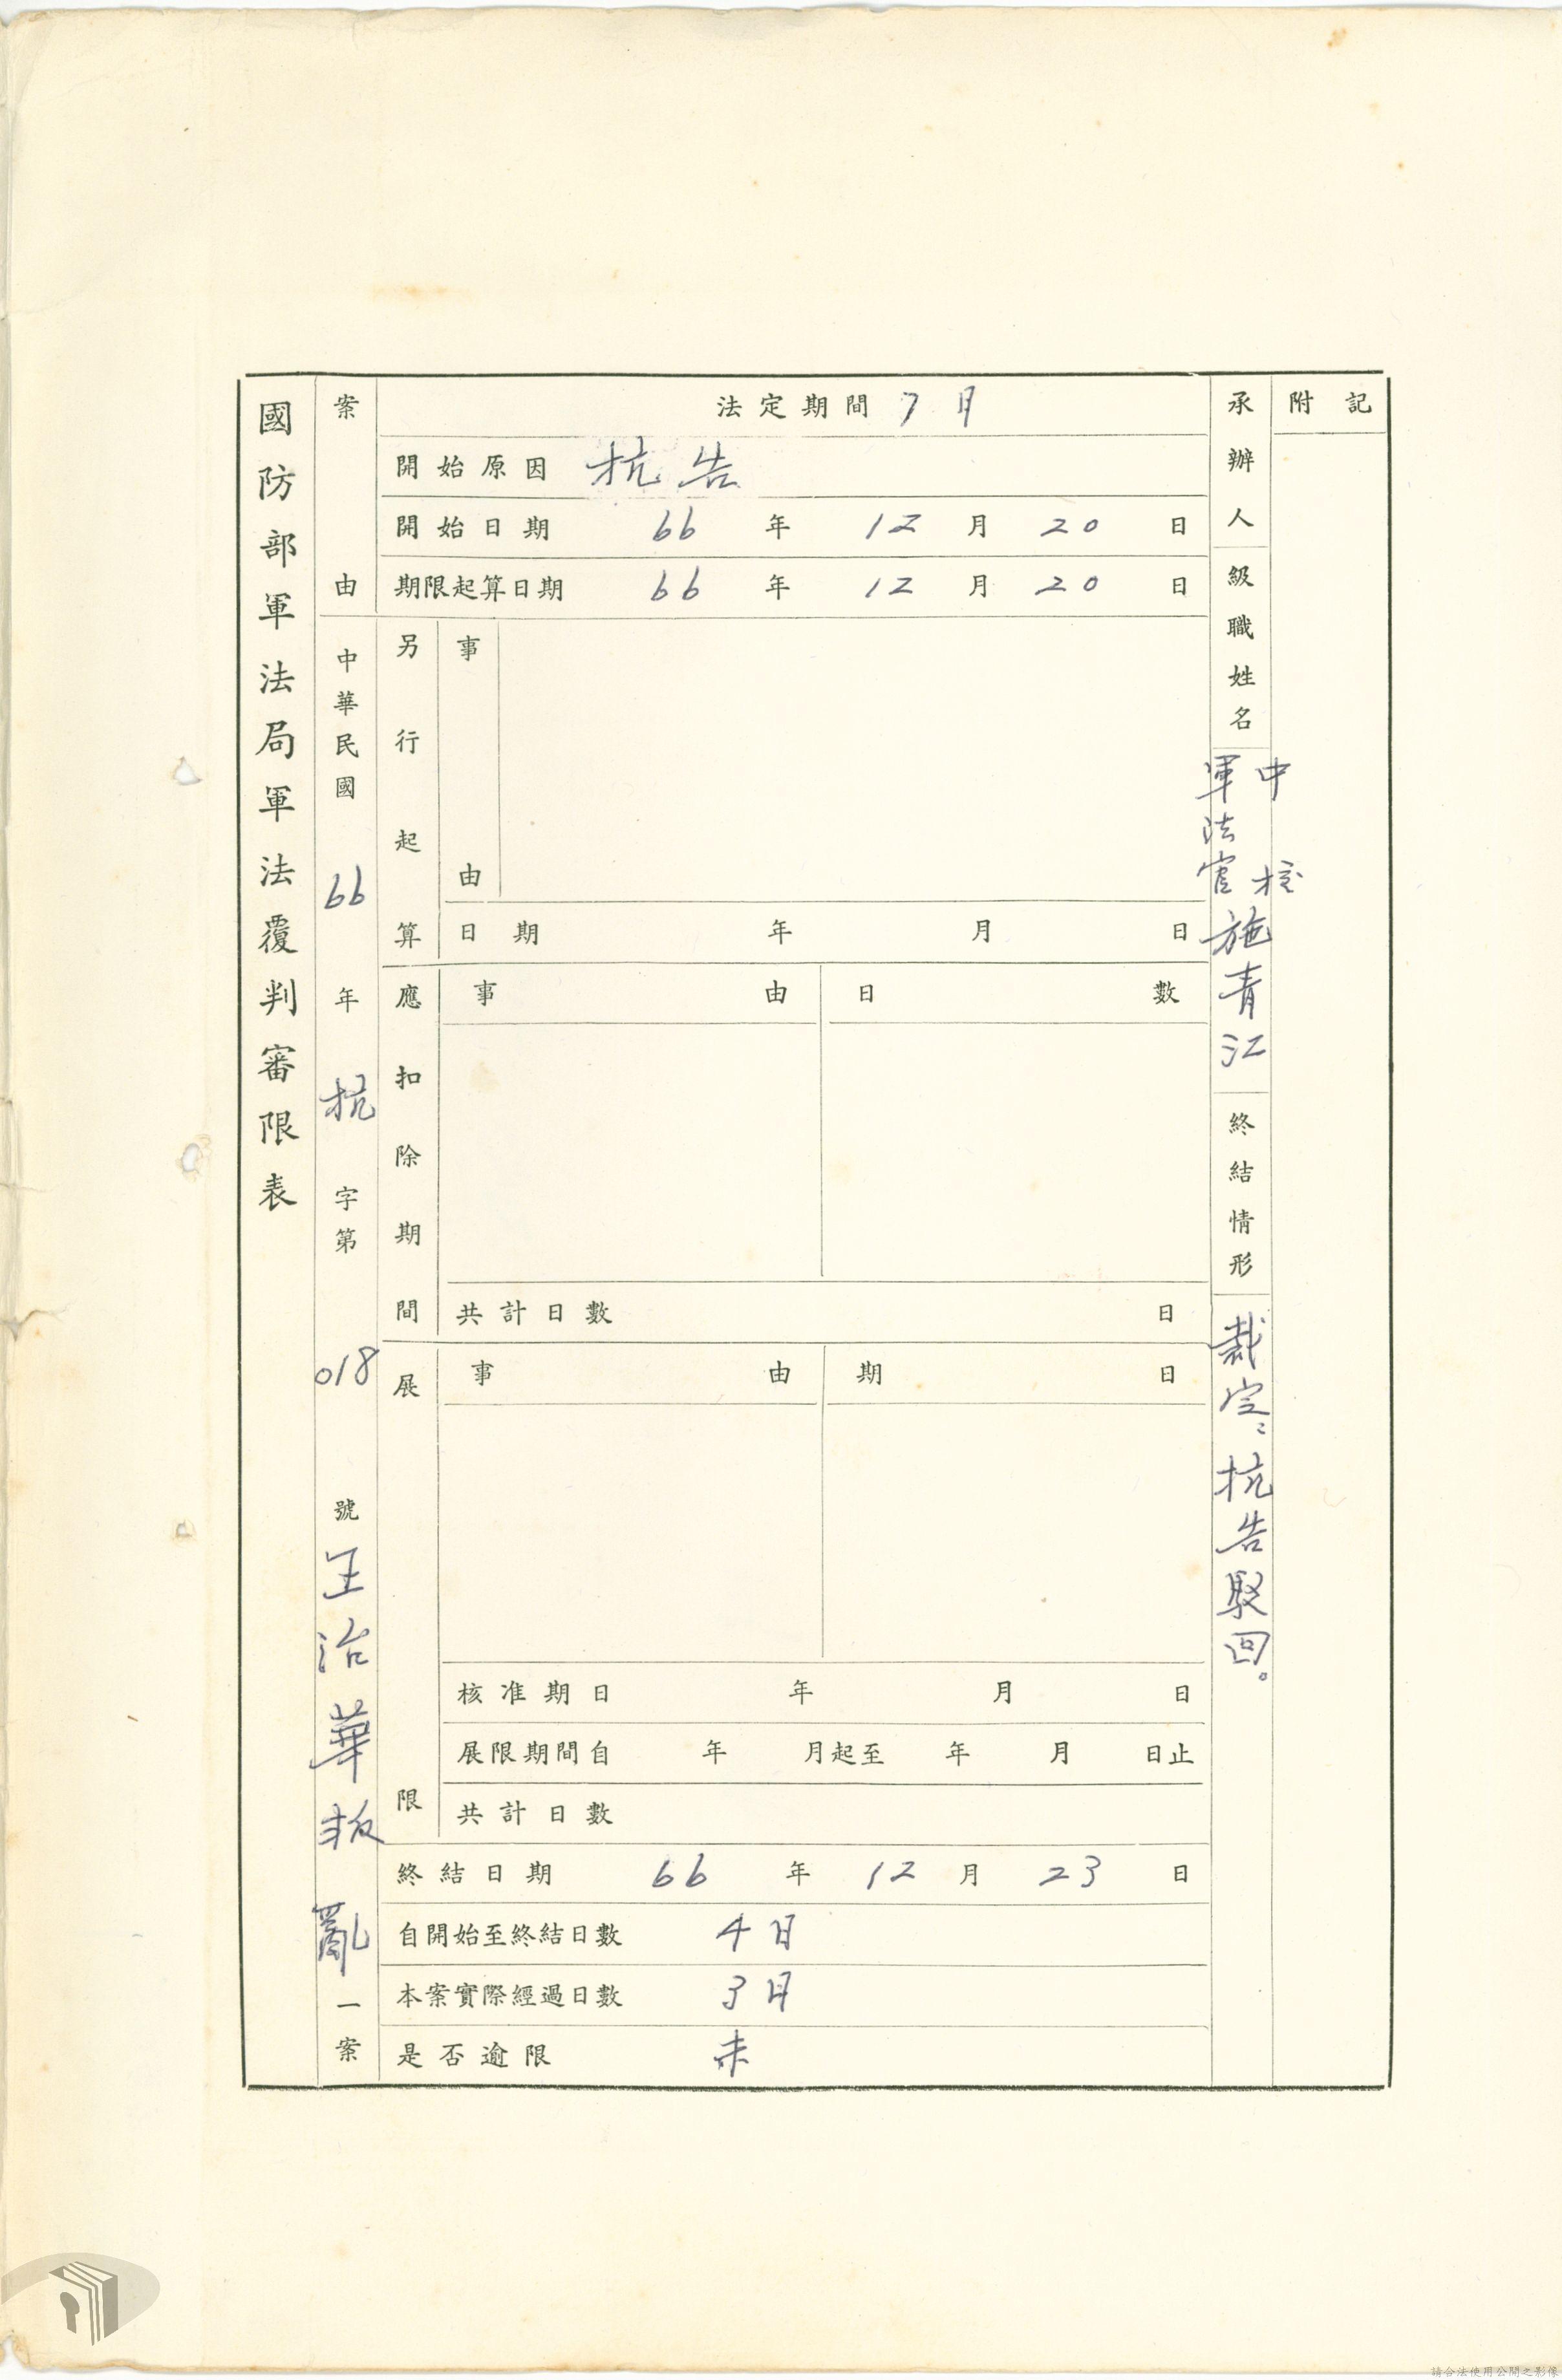 國防部軍法局軍法覆判審限表
案由
中華民國66年抗字第018號王治華叛亂一案
法定期間 7月
開始原因 抗告
開始日期 66年12月20日
期限起算日期 66年12月20日
另行起算
事由
日期 年 月 日
應扣除期間
事由 日數
共計日數 日
展限
事由 期日
核准期日 年 月 日
展限期間自 年 月起至 年 月 日止
共計日數
終結日期 66年12月23日
自開始至終結日數 4日
本案實際經過日數 3日
是否逾限 未
承辦人級職姓名
中校
軍法官施青江
終結情形
裁定:抗告駁回。
附記
請合法使用公開之影像